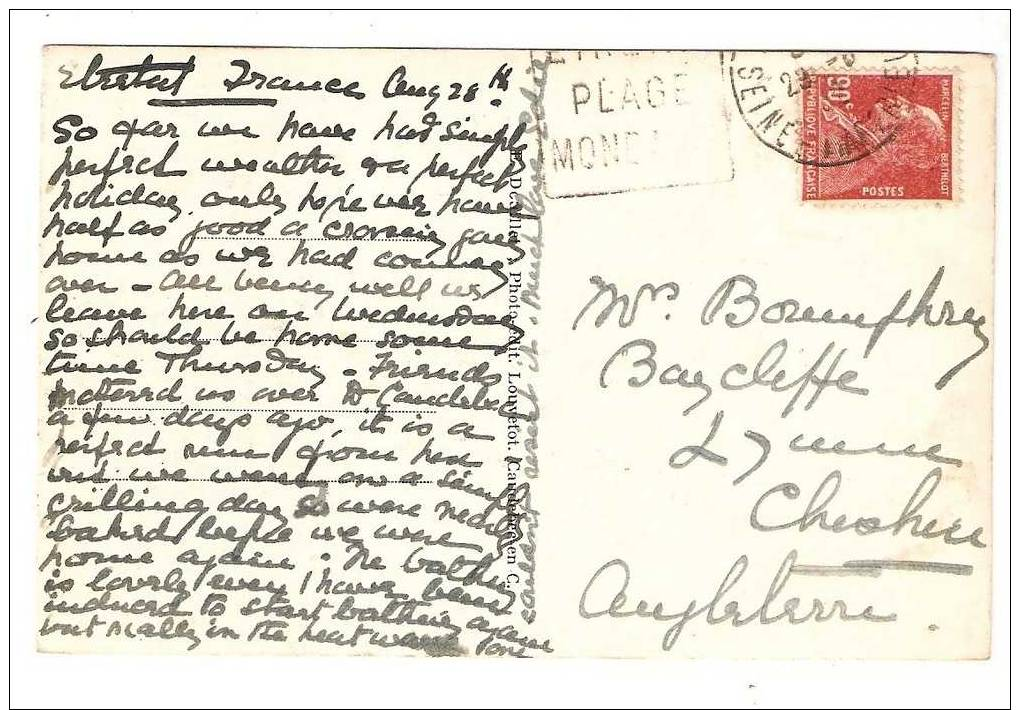 Etretat France Aug 28th
So far we have had simply
perfect weather & a perfect
holiday, only hope we have
half as good a crossing going
home as we had coming
over - All being well we
leave here on Wednesday
so should be home some
time Thursday - Friends
motored us over to Caudebec
a few days ago, it is a
perfect run from here
and we were on a simply
grilling day so were nearly
baked before we were
home again. The bathing
is lovely even I have been
induced to start bathing again
but really in the heat wave one
couldn't resist it. Much love
PLAGE
SEINE
90c
MARCELIN BERTHELOT
REPUBLIQUE FRANÇAISE
POSTES
Photo-Edit. Louvetot. Caudebec en C.
Mrs Boumphrey
Baycliffe
Lymm
Cheshire
Angleterre.